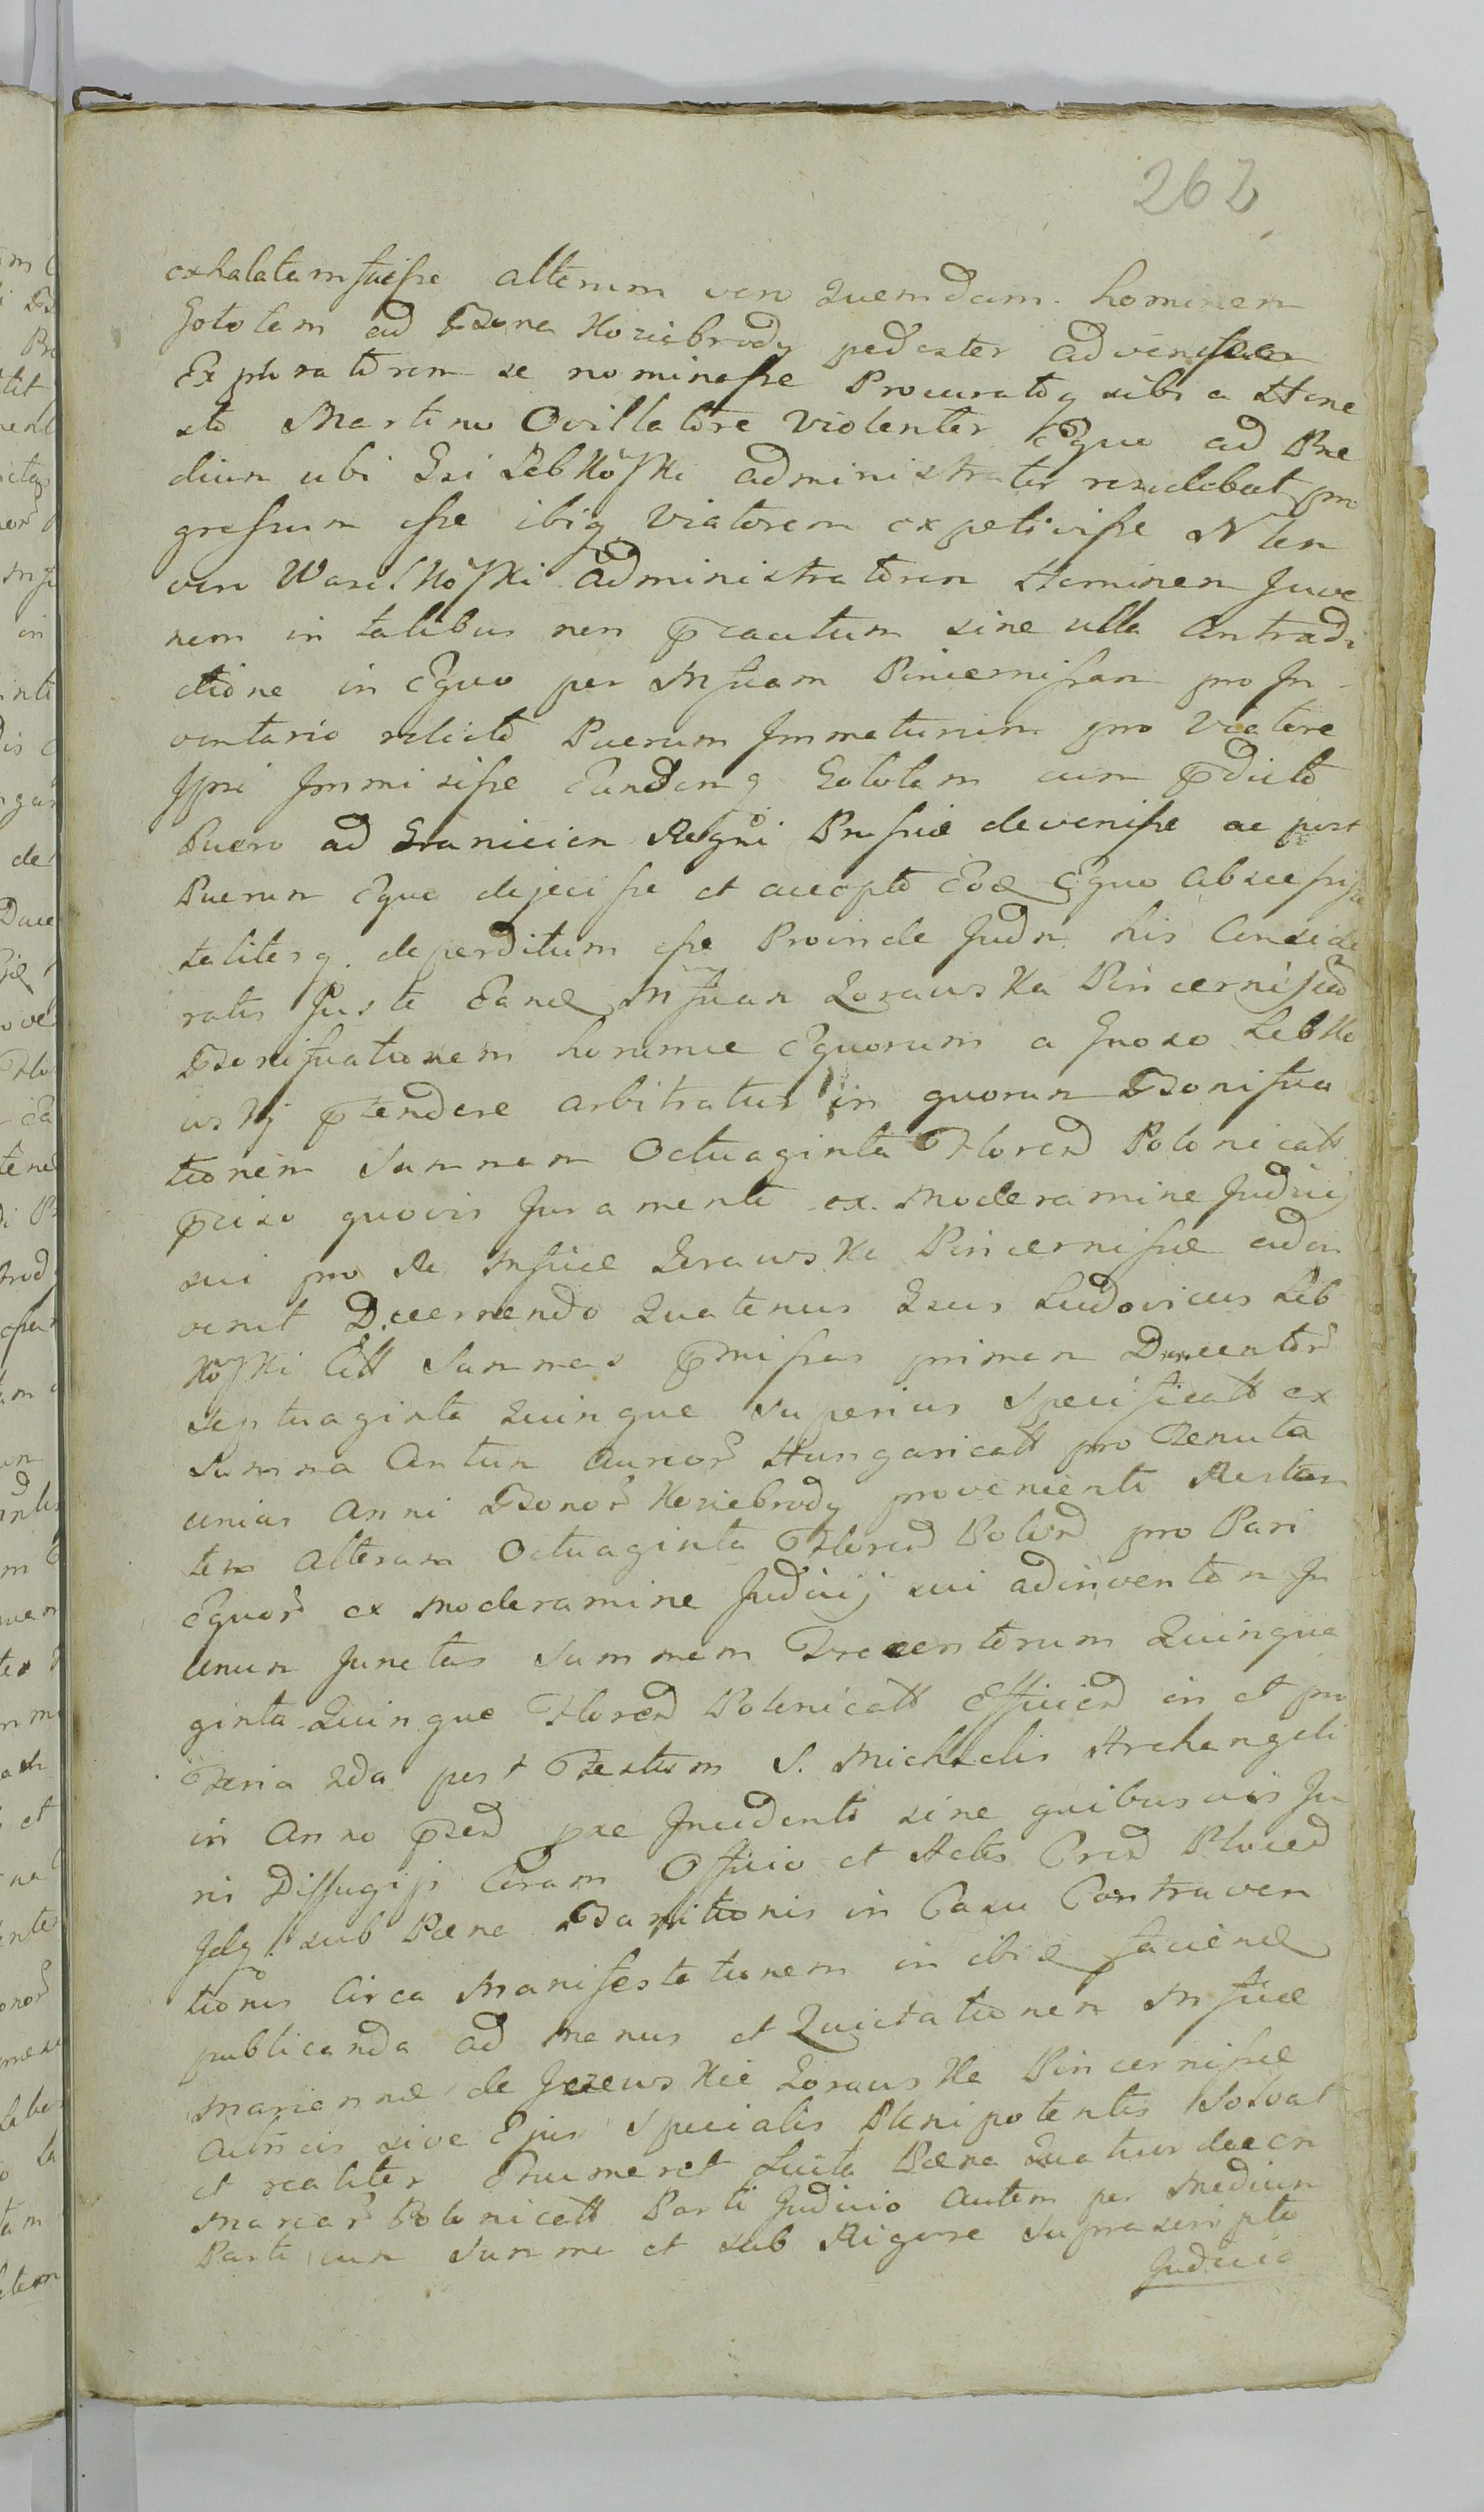 262
exhalatam fuisse alterum vero Quemdam hominem
Gołotam ad Bona Koziebrody pedester advenisse
Exploratorem se nominasse Procuratoq sibi a Hone
sto Martino Ovillatore Violenter Equo ad Præ
dium ubi Gsi Lebkoski administrator residebat pro
gressum esse ibiq Viatorem expetivisse Nlem
vero administratorem Hominem Juve
nem in talibus non præcautum sine ulla Contradi
ctione in Equo per Mficam Pincernissam pro In
ventario relicto Puerum Immaturum pro Viatore
Ipsi Immisisse Eundemq Gołotam cum prædicto
Puero ad Graniciem Regni Prussiæ devenisse ac post
Puerum Equo dejecisse et accepto Eod Equo abscessisse
taliterq deperditum esse Proinde Judm his Conside
ratis Juste Eand Mficam Zorawska Pincernissam
Bonificationem hocumce Equorum a Gnoso Lebko
wskj prætendere arbitratur in quorum Bonifica
tionem Summam Octuaginta Florend Polonicatt
præciso quovis Juramento ex Moderamine Judicij
sui pro Re Mficæ Zorawska Pincernissæ adin
venit Decernendo Quatenus Gsus Ludovicus Leb
koski Citt Summas præmissas primam Ducentor
Septuaginta Quinque superius Specificatt ex
Summa Centum Aureor Hungaricatt pro Tenuta
unius Anni Bonor Koziebrody provenienti Restan
tem Alteram Octuaginta Florend Polond pro Pari
Equor ex Moderamine Judicij sui adinventam In
unum Junctas Summam Trecentorum Quinqua
ginta Quinque Florend Polonicatt Efficiend in et pro
Feria 2da post Festum S. Michaelis Archangeli
in Anno præsend proxe Incidenti sine quibusvis Ju
ris Diffugijs Coram Officio et Actis Crend Plocend
Idq sub Pæna Bannitionis in Casu Contraven
tionis Circa Manifestationem inibid faciend
publicanda ad manus et Quietationem Mficæ
Mariannæ de Zorawska Pincernissæ
Actricis sive Ejus Specialis Plenipotentis Solvat
et realiter Enumeret Luita Pæna Quatuordecem
Marcar Polonicatt Parti Judicio autem per Medium
Parti cum Summa et sub Rigore suprascripto
Judicio